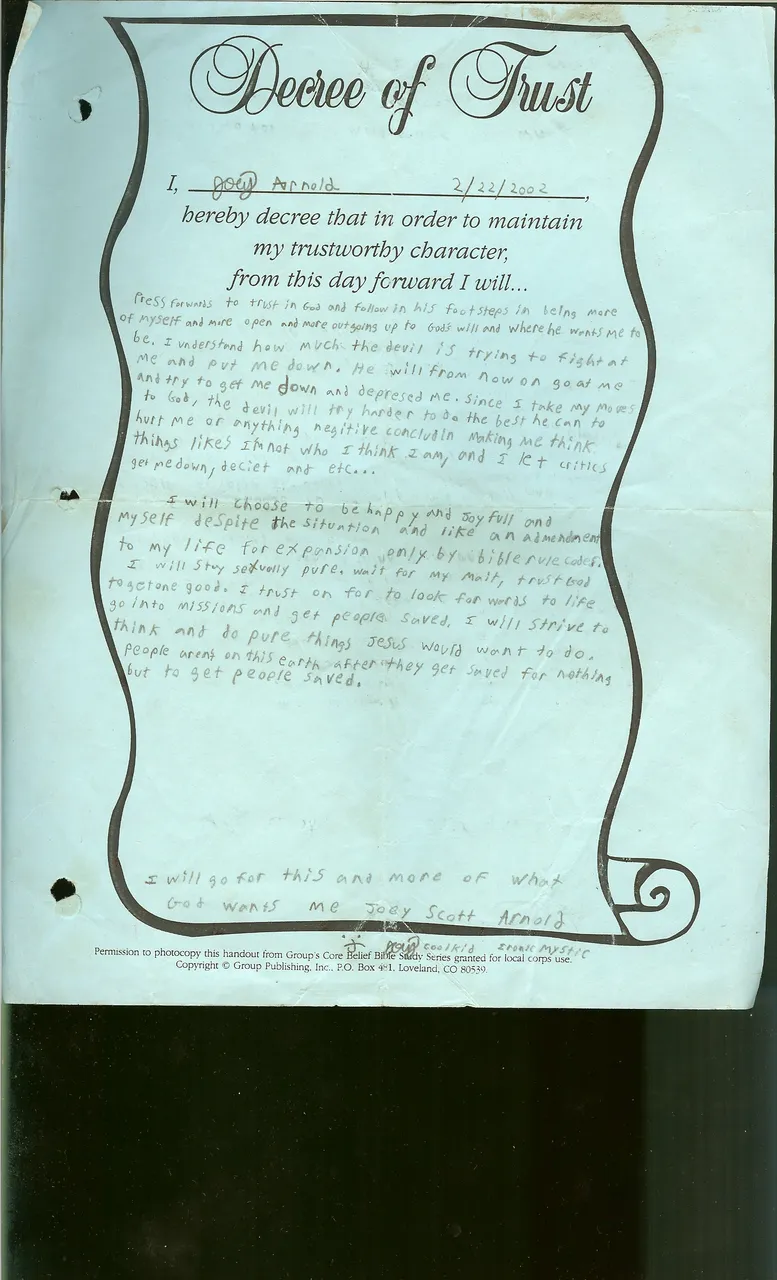 Decree of Trust
I, Joey Arnold 2/22/2002,
hereby decree that in order to maintain
my trustworthy character,
from this day forward I will...
Press forwards to trust in God and follow in his footsteps in being more
of myself and more open and more outgoing up to Gods will and where he wants me to
be. I understand how much the devil is trying to fight at
me and put me down. He will from now on go at me
and try to get me down and depresed me. Since I take my moves
to God, the devil will try harder to do the best he can to
hurt me or anything negitive concludin making me think
things likes I'm not who I think I am, and I let critics
get me down, deciet and etc...
I will choose to be happy and Joyfull and
myself despite the situation and like an admendment
to my life for expansion only by bible rule codes.
I will stay sexually pure. wait for my mait, trust God
to get one good. I trust on for to look for words to life
go into missions and get people saved. I will strive to
think and do pure things Jesus would want to do.
People arent on this earth after they get saved for nothing
but to get people saved.
I will go for this and more of what
God wants me Joey Scott Arnold
Joey coolkid Ironic Mystic
Permission to photocopy this handout from Group's Core Belief Bible Study Series granted for local corps use.
Copyright © Group Publishing, Inc., P.O. Box 481, Loveland, CO 80539.